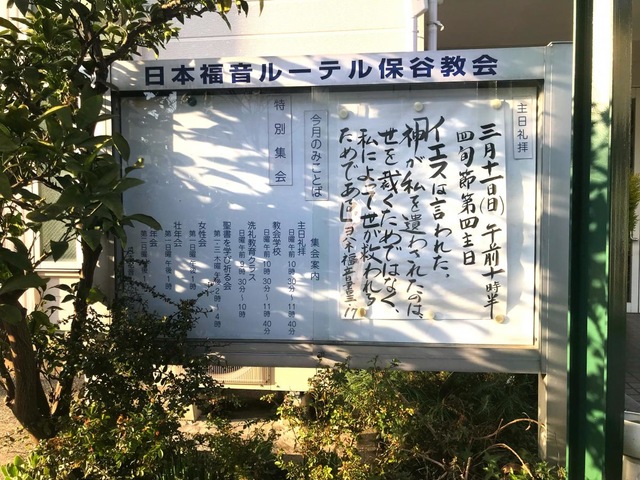 日本福音ルーテル保谷教会
主日礼拝
三月十一日(日) 午前十時半
四旬節第四主日
イエスは言われた。
神が私を遣わされたのは、
世を裁くためではなく、
私によって世が救われる
ためである。
今月のみことば
特別集会
集会案内
主日礼拝
日曜午前10時30分〜11時40分
教会学校
日曜午前10時30分〜11時40分
洗礼教育クラス
日曜午前9時30分〜10時
聖書を学び祈る会
女性会
壮年会